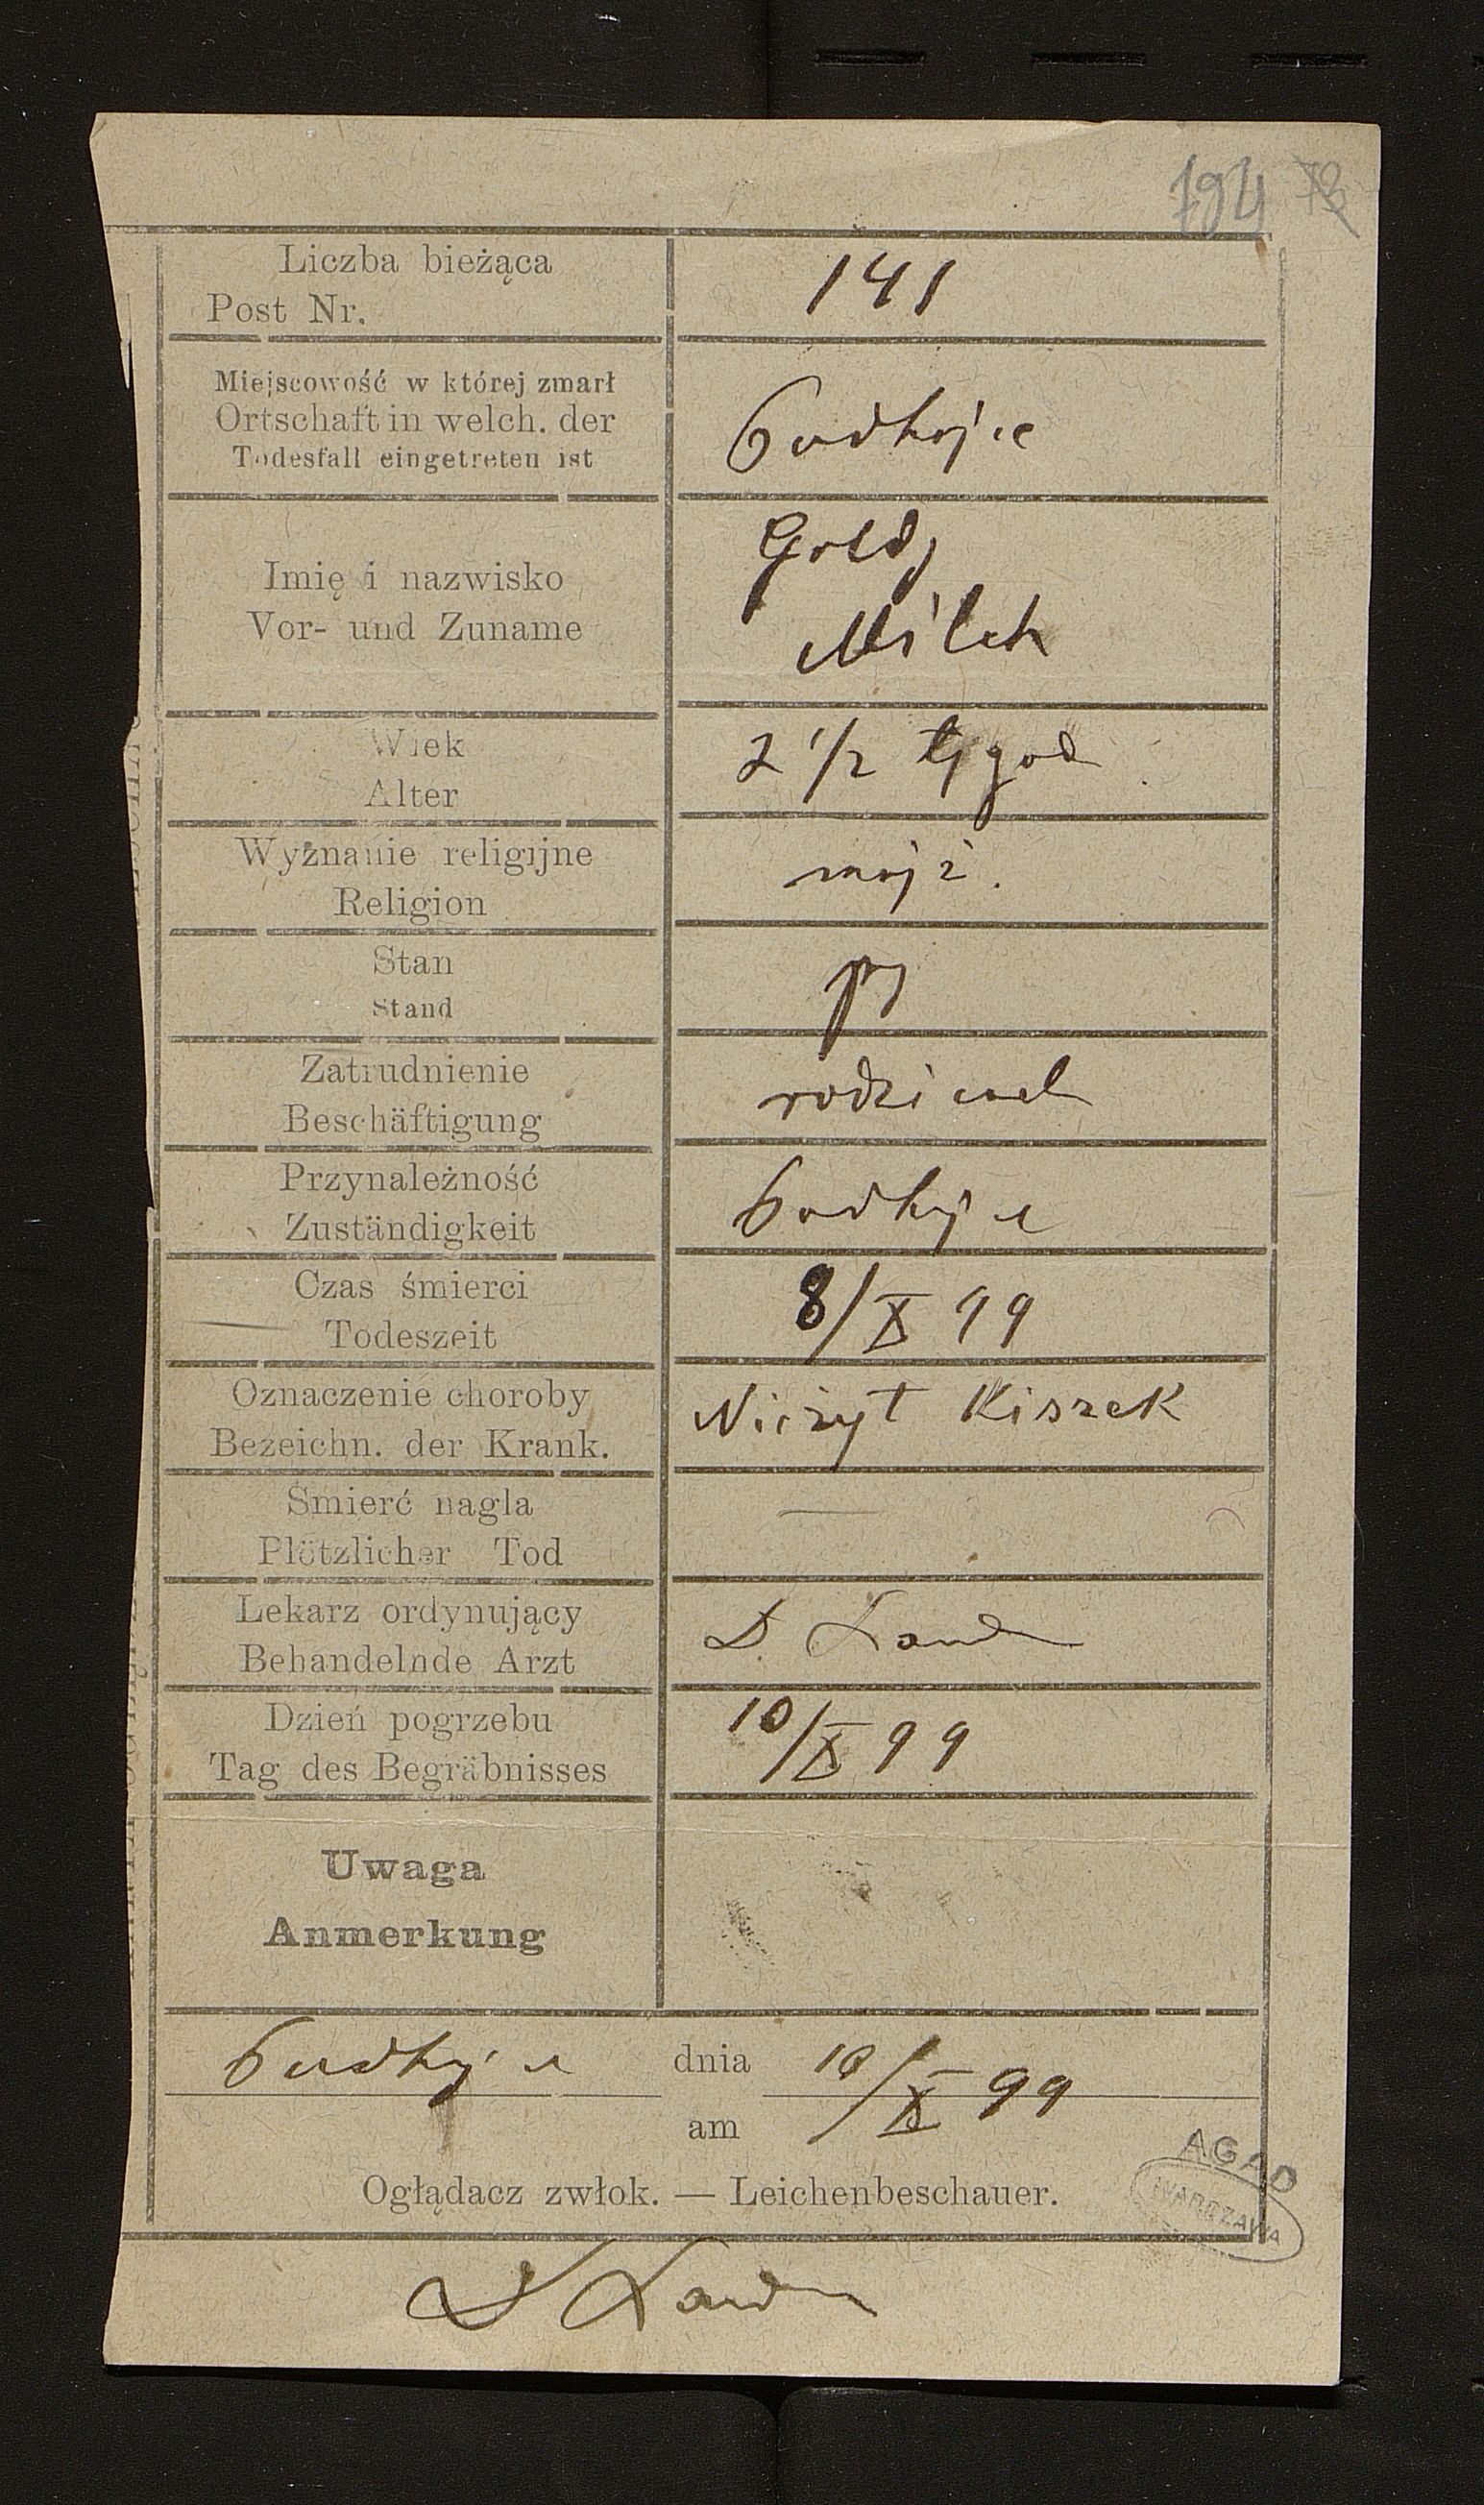 194
Liczba bieżąca
Post Nr.
141
Miejscowość w której zmarł
Ortschaft in welch. der
Todesfall eingetreten ist
Podhajce
Imię i nazwisko
Vor- und Zuname
Gold
Milch
Wiek
Alter
2 1/2 tygod
Wyznanie religijne
Religion
mojż.
Stan
Stand
Zatrudnienie
Beschäftigung
Przynależność
Zuständigkeit
Podhajce
Czas śmierci
Todeszeit
8/X 99
Oznaczenie choroby
Bezeichn. der Krank.
Nieżyt Kiszek
Śmierć nagla
Plötzlicher Tod
—
Lekarz ordynujący
Behandelnde Arzt
D.
Dzień pogrzebu
Tag des Begräbnisses
10/X 99
Uwaga
Anmerkung
Podhajce dnia 10/X 99
am
Oglądacz zwłok. — Leichenbeschauer.
AGAD
WARSZAWA